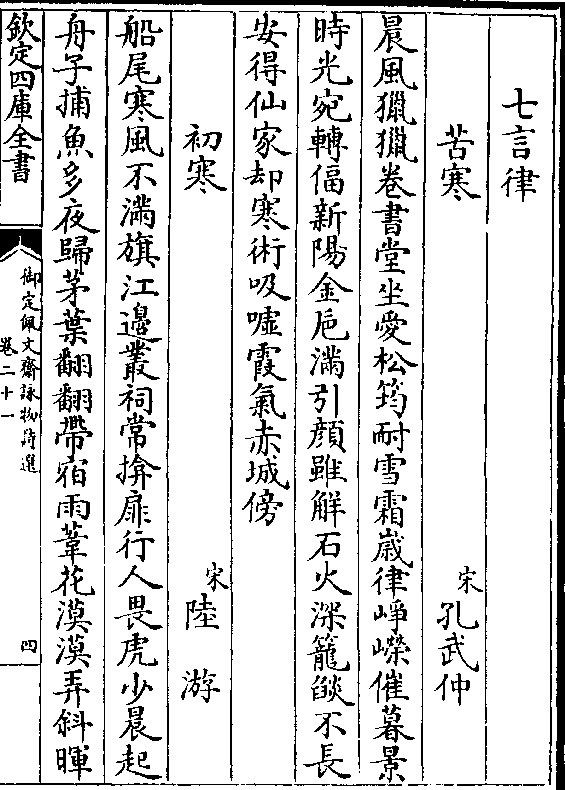 七言律
苦寒
宋 孔武仲
晨風獵獵卷書堂坐愛松筠耐雪霜嵗律崢嶸催暮景
時光宛轉偪新陽金巵滿引顔雖解石火深籠燄不長
安得仙家却寒術吸噓霞氣赤城傍
初寒
宋 陸游
船尾寒風不滿旗江邊叢祠常揜扉行人畏虎少晨起
舟子捕魚多夜歸茅葉翻翻帶宿雨葦花漠漠弄斜暉
欽定四庫全書
御定佩文齋詠物詩選
卷二十一
四